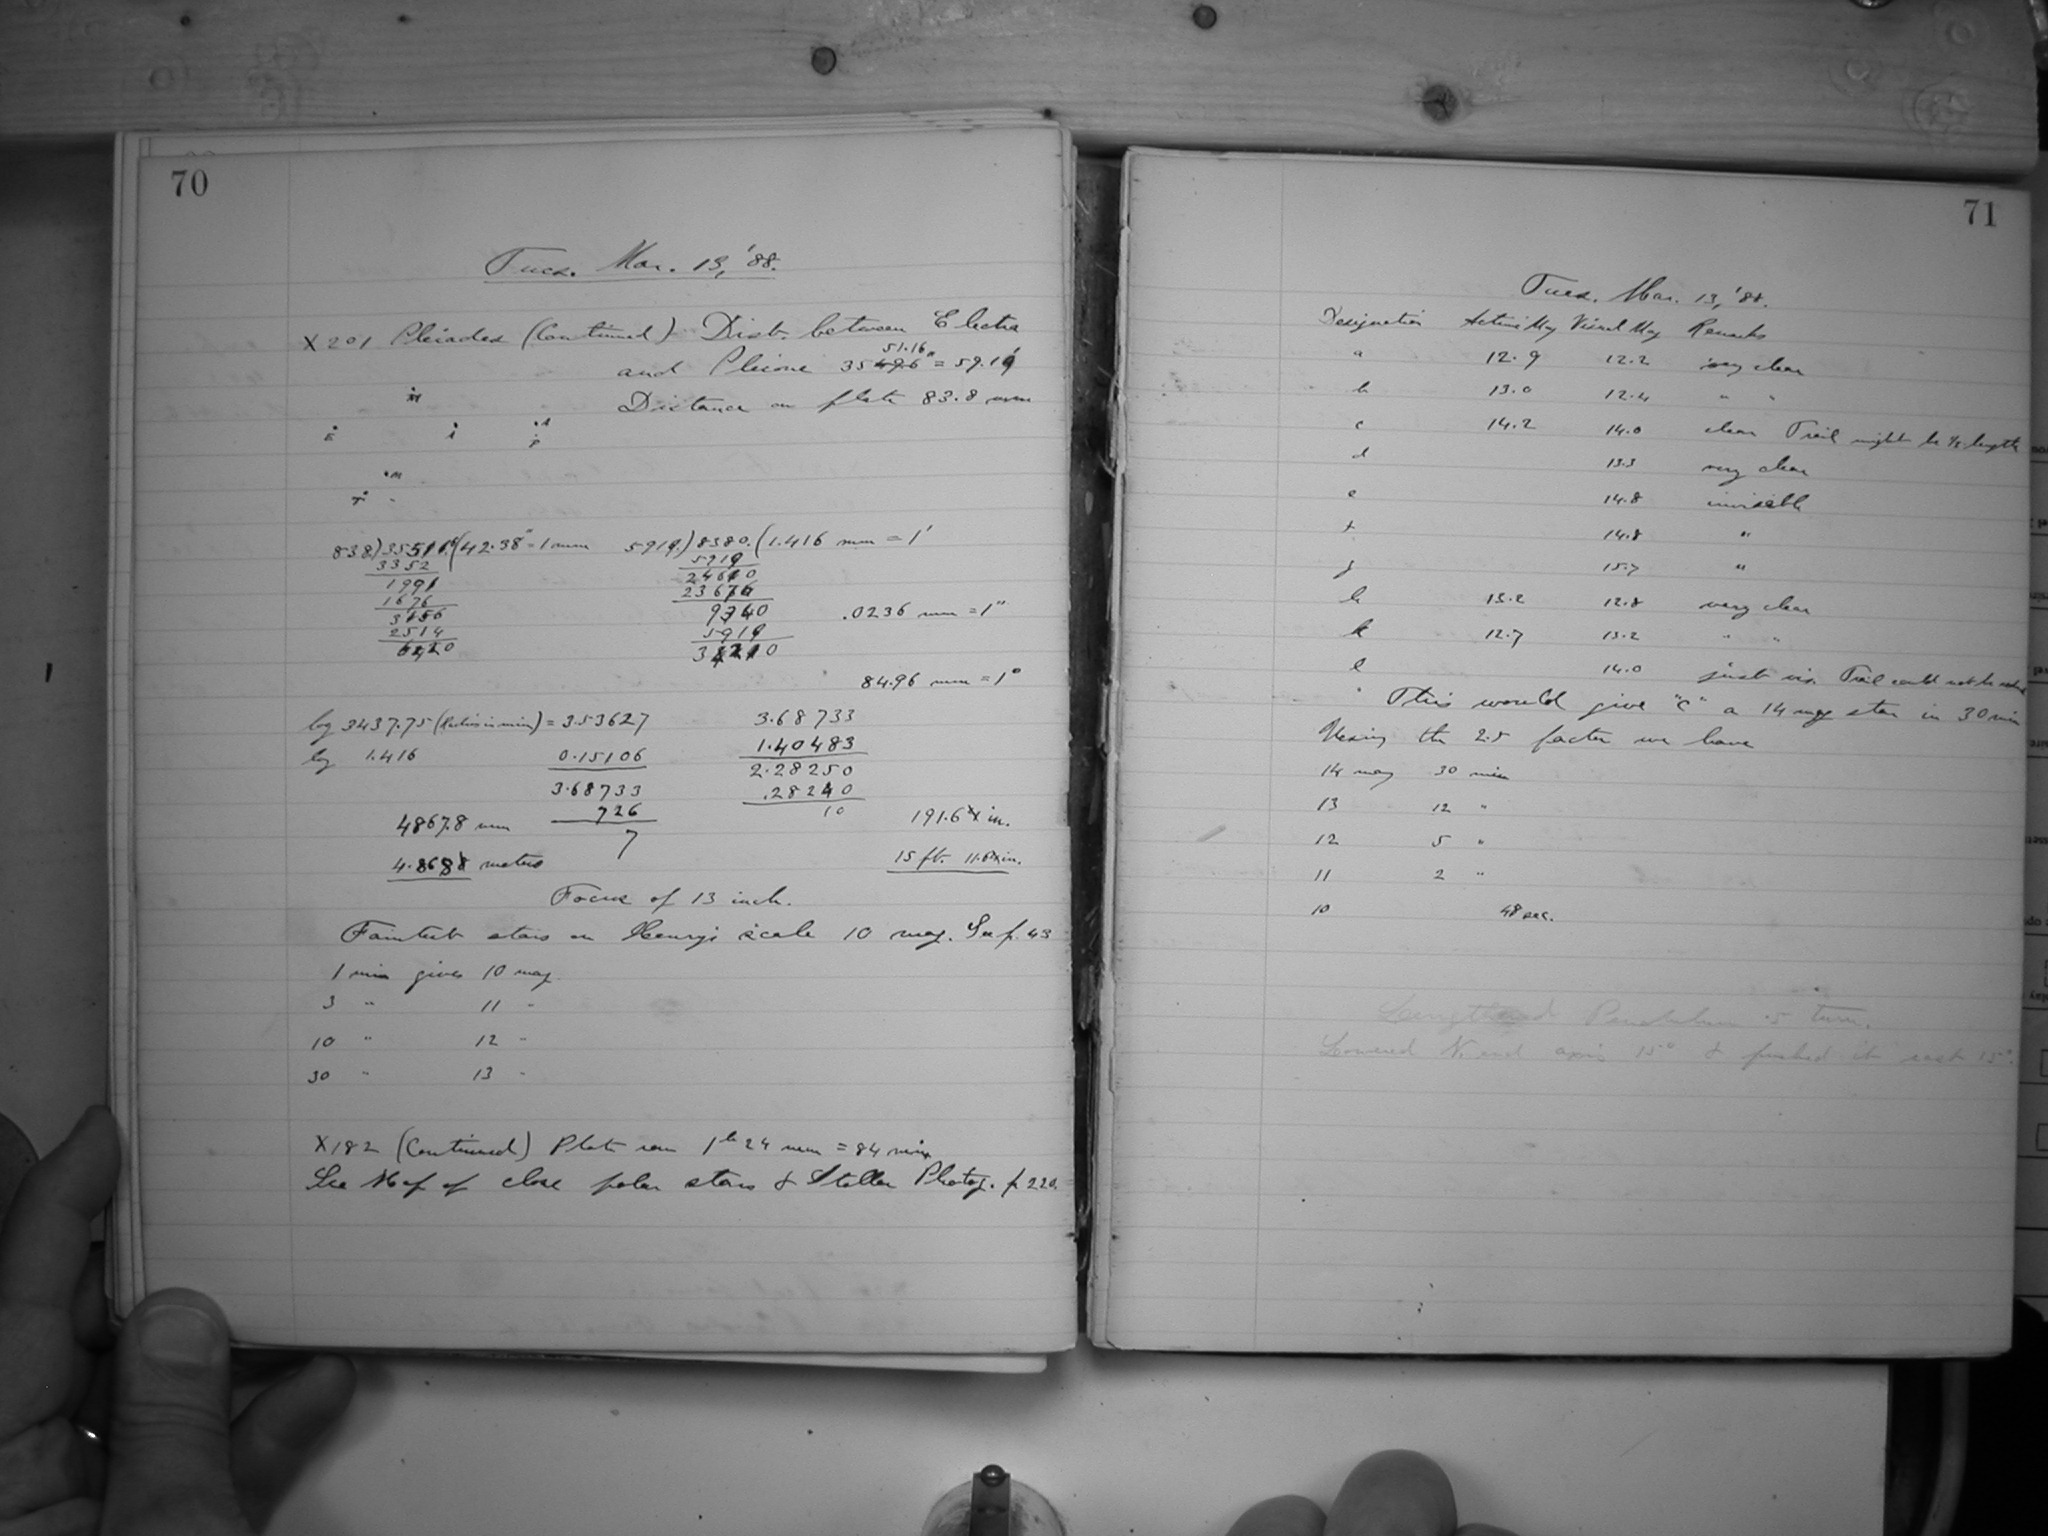 70
Tues. Mar. 13, '88.
X201 Pleiades (Continued) Dist. between Electra
51.16"
and Pleione 35496 = 59.19'
Distance on plate 83.8 mm
M
E A A
P
M
T
838)35516(42.38" = 1 mm 5919)8380.(1.416 mm = 1'
3352 5919
1991 24610
1676 23676
3156 9340 .0236 mm = 1"
2514 5919
6420 34210
84.96 mm = 1°
log 3437.75 (Radius in min) = 3.53627 3.68733
log 1.416 0.15106 1.40483
3.68733 2.28250
726 .28240
4867.8 mm 7 10 191.6 in.
4.868 meters 15 ft. 11.6 in.
Focus of 13 inch.
Faintest stars on Henry's scale 10 mag. See p. 43
1 min gives 10 mag.
3 " 11 "
10 " 12 "
30 " 13 "
X182 (Continued) Plate ran 1h 24 mm = 84 min
See Map of close polar stars & Stellar Photog. p 220.
71
Tues. Mar. 13, '88.
Designation Actinic Mag Visual Mag Remarks
a 12.9 12.2 very clear
b 13.0 12.4 " "
c 14.2 14.0 clear Trail might be 1/2 length
d 13.3 very clear
e 14.8 invisible
f 14.8 "
g 15.7 "
h 13.2 12.8 very clear
k 12.7 13.2 " "
l 14.0 just vis. Trail could not be
This would give "c" a 14 mag star in 30 min
Using the 2.5 factor we have
14 mag 30 min
13 12 "
12 5 "
11 2 "
10 48 sec.
Lengthened Pendulum .5 turn.
Lowered N. end axis 15° & pushed it east 15°.